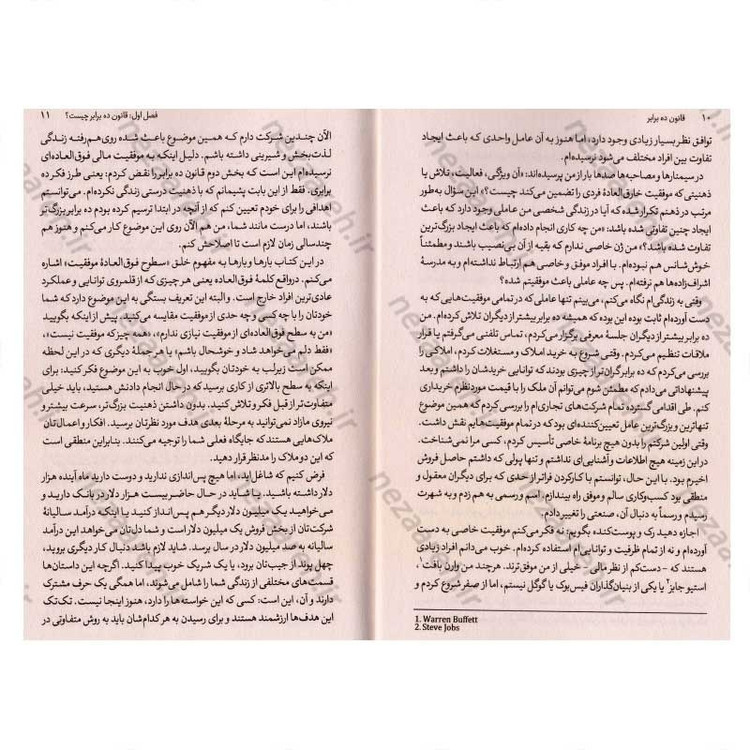 ۱۰ قانون ده برابر
توافق نظر بسیار زیادی وجود دارد، اما هنوز به آن عامل واحدی که باعث ایجاد
تفاوت بین افراد مختلف می‌شود نرسیده‌ام.
در سمینارها و مصاحبه‌ها صدها بار از من پرسیده‌اند: «آن ویژگی، فعالیت، تلاش یا
ذهنیتی که موفقیت خارق‌العادهٔ فردی را تضمین می‌کند چیست؟» این سؤال به‌طور
مرتب در ذهنم تکرار شده که آیا در زندگی شخصی من عاملی وجود دارد که باعث
ایجاد چنین تفاوتی شده باشد: «من چه کاری انجام داده‌ام که باعث ایجاد بزرگ‌ترین
تفاوت شده باشد؟» من ژن خاصی ندارم که بقیه از آن بی‌نصیب باشند و مطمئناً
خوش‌شانس هم نبوده‌ام. با افراد موفق و خاصی هم ارتباط نداشته‌ام و به مدرسهٔ
اشراف‌زاده‌ها هم نرفته‌ام. پس چه عاملی باعث موفقیتم شده؟
وقتی به زندگی‌ام نگاه می‌کنم، می‌بینم تنها عاملی که در تمامی موفقیت‌هایی که به
دست آورده‌ام ثابت بوده این بوده که همیشه ده برابر بیشتر از دیگران تلاش کرده‌ام. من
ده برابر بیشتر از دیگران جلسهٔ معرفی برگزار می‌کردم، تماس تلفنی می‌گرفتم یا قرار
ملاقات تنظیم می‌کردم. وقتی شروع به خرید املاک و مستغلات کردم، املاکی را
بررسی می‌کردم که ده برابر گران‌تر از چیزی بودند که توانایی خریدشان را داشتم و بعد
پیشنهاداتی می‌دادم که مطمئن شوم می‌توانم آن ملک را با قیمت موردنظرم خریداری
کنم. طی اقدامی گسترده تمام شرکت‌های تجاری‌ام را بررسی کردم که همین موضوع
تنهاترین و بزرگ‌ترین عامل تعیین‌کننده‌ای بود که در تمام موفقیت‌هایم نقش داشت.
وقتی اولین شرکتم را بدون هیچ برنامهٔ خاصی تأسیس کردم، کسی مرا نمی‌شناخت.
در این زمینه هیچ اطلاعات و آشنایی‌ای نداشتم و تنها پولی که داشتم حاصل فروش
اخیرم بود. با این حال، توانستم با به کارکردن فراتر از حدی که برای دیگران معقول و
منطقی بود کسب‌وکاری سالم و موفق راه بیندازم. اسم و رسمی به هم زدم و به شهرت
رسیدم و رسماً به دنبال آن، صنعتی را تغییر دادم.
اجازه دهید رک و پوست‌کنده بگویم: نه فکر می‌کنم موفقیت خاصی به دست
آورده‌ام و نه از تمام ظرفیت و توانایی‌ام استفاده کرده‌ام. خوب می‌دانم افراد زیادی
هستند که – دست‌کم از نظر مالی – خیلی از من موفق‌ترند. هرچند من وارن بافت¹،
استیو جابز² یا یکی از بنیان‌گذاران فیس‌بوک یا گوگل نیستم، اما از صفر شروع کردم و
1. Warren Buffett
2. Steve Jobs
فصل اول: قانون ده برابر چیست؟ ۱۱
الآن چندین شرکت دارم که همین موضوع باعث شده روی‌هم‌رفته زندگی
لذت‌بخش و شیرینی داشته باشم. دلیل اینکه به موفقیت مالی فوق‌العاده‌ای
نرسیده‌ام این است که بخش دوم قانون ده برابر را نقض کردم: یعنی طرز فکر ده
برابری. فقط از این بابت پشیمانم که با ذهنیت درستی زندگی نکرده‌ام. می‌توانستم
اهدافی را برای خودم تعیین کنم که از آنچه در ابتدا ترسیم کرده بودم ده برابر بزرگ‌تر
باشند؛ اما درست مانند شما، من هم الآن روی این موضوع کار می‌کنم و هنوز هم
چندسالی زمان لازم است تا اصلاحش کنم.
در این کتاب بارها و بارها به مفهوم خلق «سطوح فوق‌العادهٔ موفقیت» اشاره
می‌کنم. درواقع کلمهٔ فوق‌العاده یعنی هر چیزی که از قلمروی توانایی و عملکرد
عادی‌ترین افراد خارج است. و البته این تعریف بستگی به این موضوع دارد که شما
خودتان را با چه کسی و چه حدی از موفقیت مقایسه می‌کنید. پیش از اینکه بگویید
«من به سطح فوق‌العاده‌ای از موفقیت نیازی ندارم»، «همه چیز که موفقیت نیست»،
«فقط دلم می‌خواهد شاد و خوشحال باشم» یا هر جملهٔ دیگری که در این لحظه
ممکن است زیرلب به خودتان بگویید، اول خوب به این موضوع فکر کنید: برای
اینکه به سطح بالاتری از کاری برسید که در حال انجام دادنش هستید، باید خیلی
متفاوت‌تر از قبل فکر و تلاش کنید. بدون داشتن ذهنیت بزرگ‌تر، سرعت بیشتر و
نیروی مازاد نمی‌توانید به مرحلهٔ بعدی هدف مورد نظرتان برسید. افکار و اعمال‌تان
ملاک‌هایی هستند که جایگاه فعلی شما را توجیه می‌کنند. بنابراین منطقی است
که این دو ملاک را مدنظر قرار دهید.
فرض کنیم که شاغل‌اید، اما هیچ پس‌اندازی ندارید و دوست دارید ماه آینده هزار
دلار داشته باشید. یا شاید در حال حاضر بیست هزار دلار در بانک دارید و
می‌خواهید یک میلیون دلار دیگر هم پس‌انداز کنید یا اینکه درآمد سالیانهٔ
شرکت‌تان از بخش فروش یک میلیون دلار است و شما دلتان می‌خواهد این درآمد
سالیانه به صد میلیون دلار در سال برسد. شاید لازم باشد دنبال کار دیگری بروید،
چهل پوند از جیب‌تان برود، یا یک شریک خوب پیدا کنید. اگرچه این داستان‌ها
قسمت‌های مختلفی از زندگی شما را شامل می‌شوند، اما همگی یک حرف مشترک
دارند و آن، این است: کسی که این خواسته‌ها را دارد، هنوز اینجا نیست. تک‌تک
این هدف‌ها ارزشمند هستند و برای رسیدن به هرکدام‌شان باید به روش متفاوتی در
nezaafeh.ir